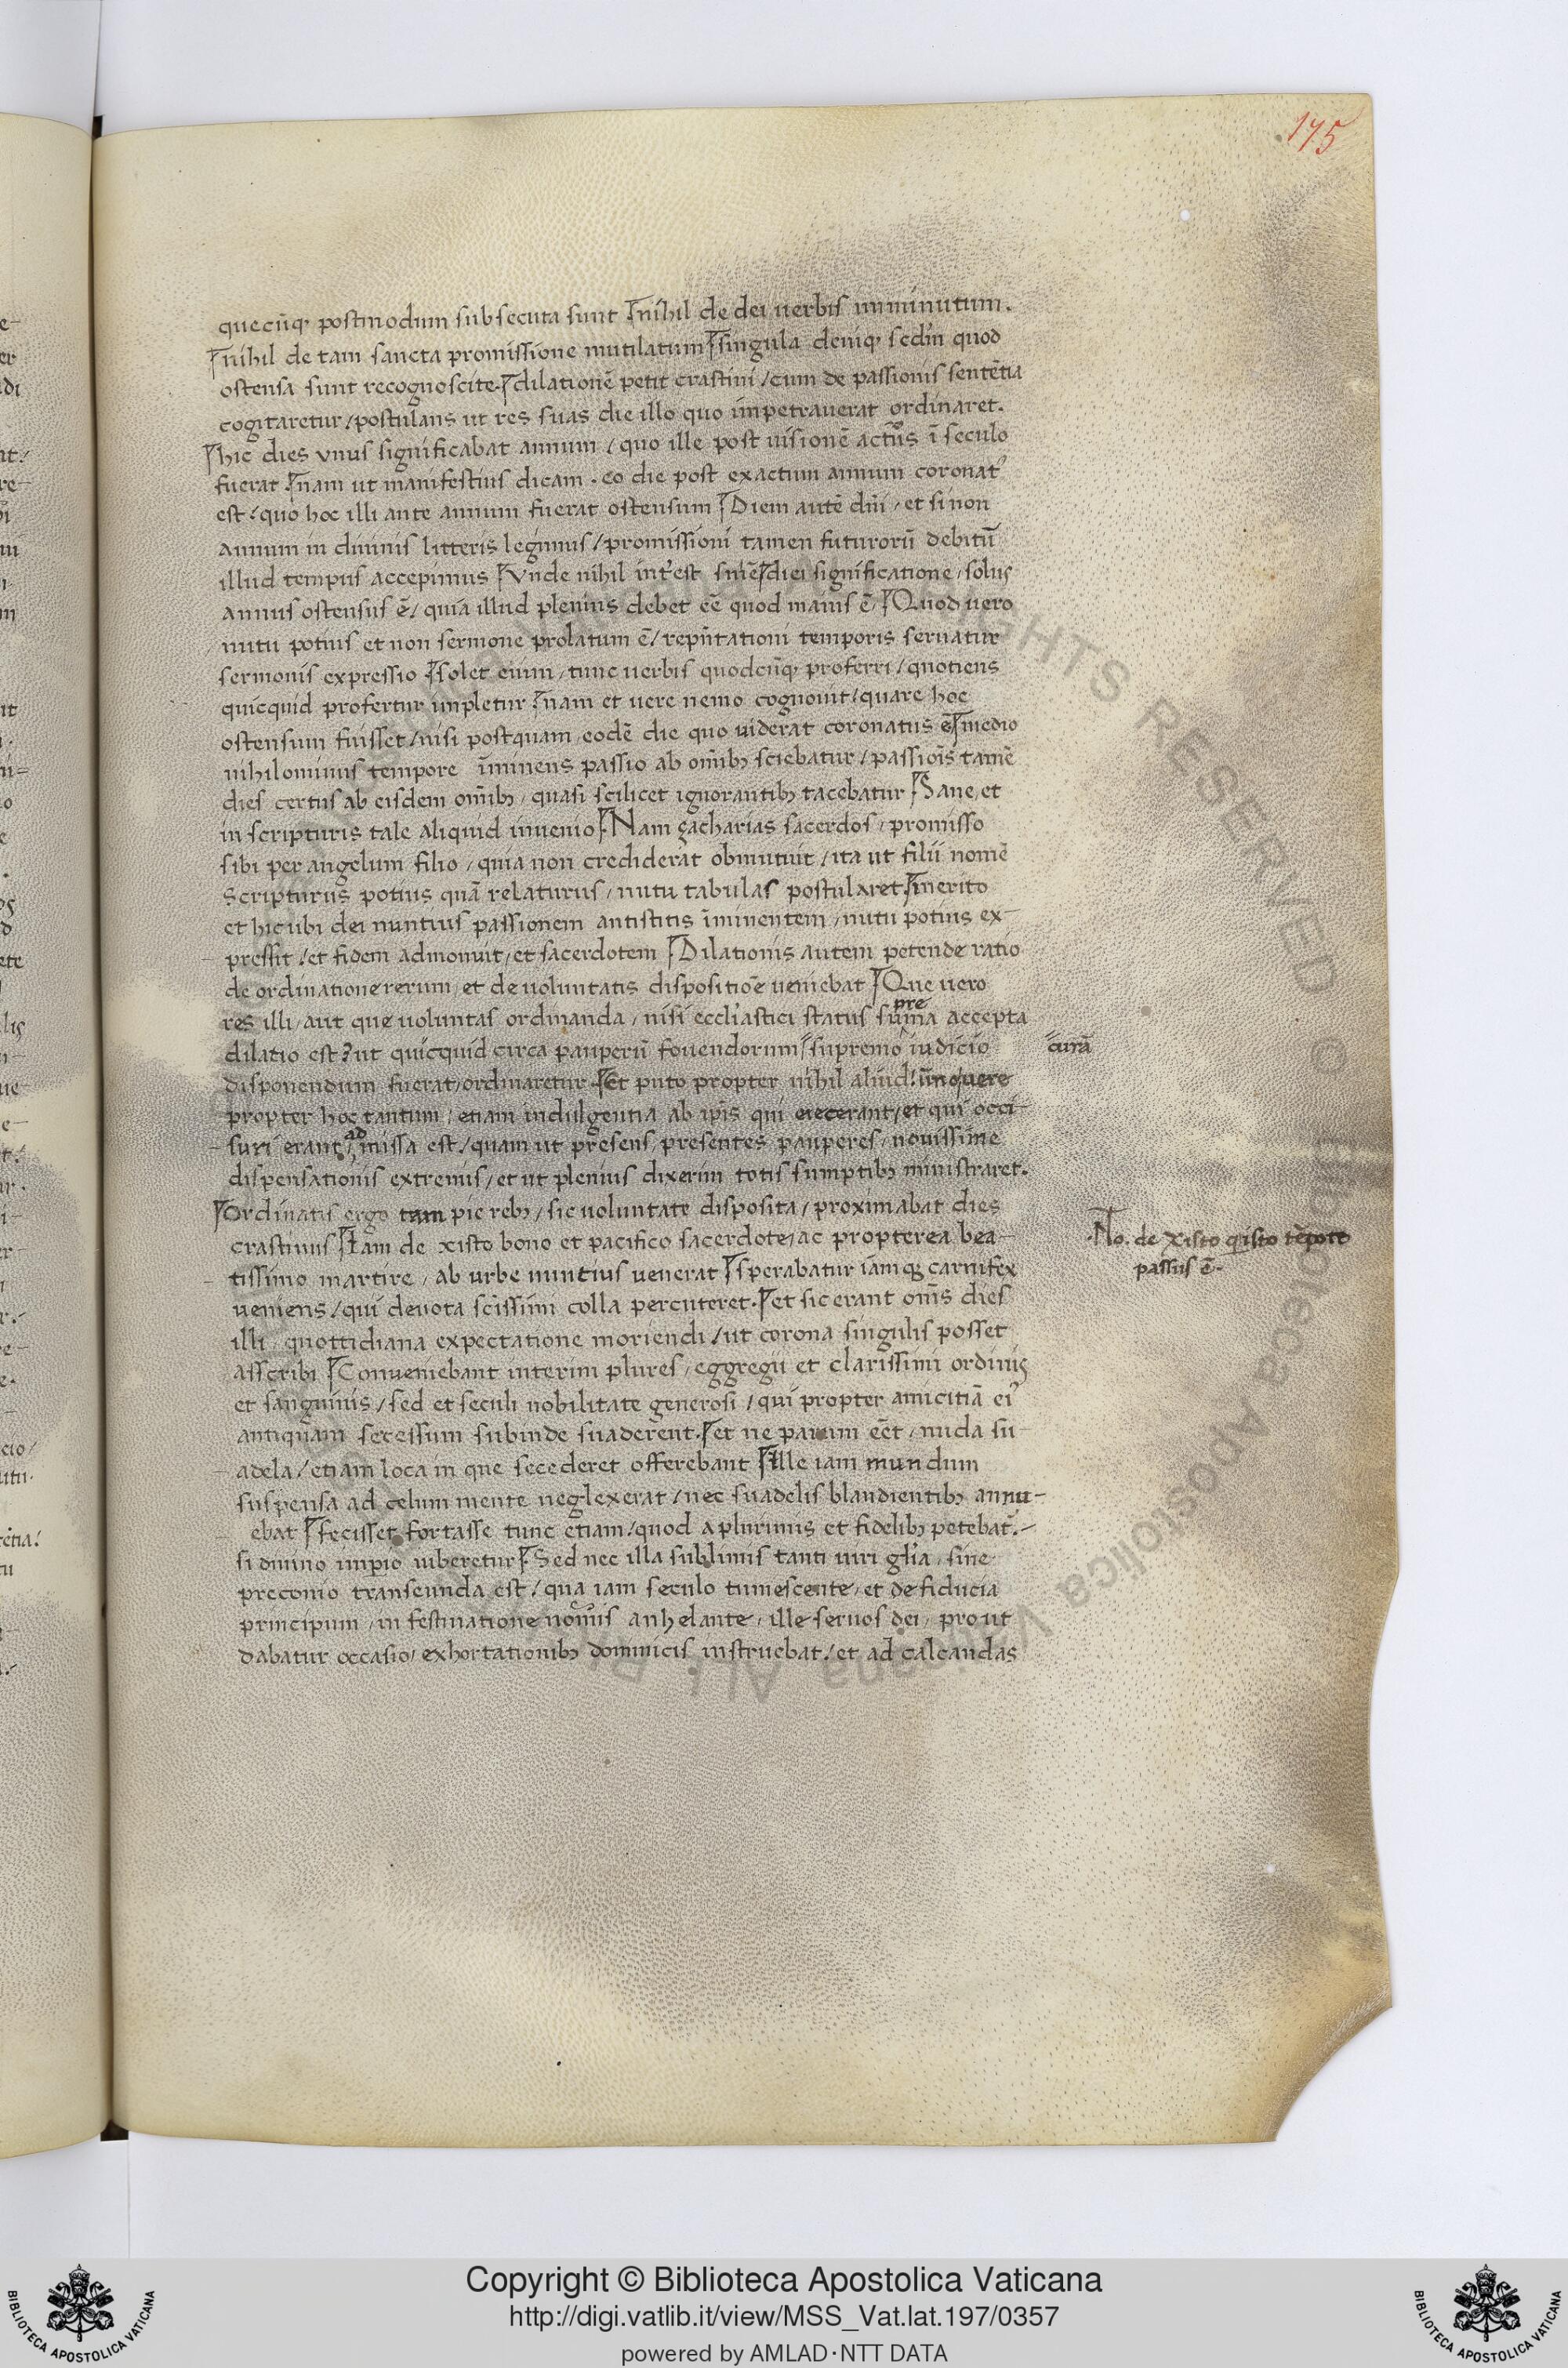 175
quecūq; postmodum subsecuta sunt nihil de dei uerbis imminutum.
nihil de tam sancta promissione mutilatum singula deniq; sedm̄ quod
ostensa sunt recognoscite. dilationē petit crastini / cum de passionis sentētia
cogitaretur / postulans ut res suas die illo quo impetrauerat ordinaret.
hic dies vnus significabat annum / quo ille post uisionē acturus ī seculo
fuerat. nam ut manifestius dicam. eo die post exactum annum coronat᾽
est / quo hoc illi ante annum fuerat ostensum Diem autē dn̄i / et si non
annum in diuinis litteris legimus / promissioni tamen futurorū debitū
illud tempus accepimus Vnde nihil int᾽est sine diei significatione / solus
annus ostensus ē / quia illud plenius debet eē quod maius ē / Quod uero
nutu potius et non sermone prolatum ē / reputationi temporis seruatur
sermonis expressio solet enim / tunc uerbis quodcūq; proferri / quotiens
quicquid profertur impletur nam et uere nemo cognouit / quare hoc
ostensum fuisset / nisi postquam eodē die quo uiderat coronatus ē medio
nihilominus tempore īminens passio ab omīb; sciebatur / passiois tamē
dies certus ab eisdem omīb; quasi scilicet ignorantib; tacebatur Sane et
in scripturis tale aliquid inuenio. Nam zacharias sacerdos / promisso
sibi per angelum filio / quia non crediderat obmutuit / ita ut filii nomē
scripturus potius quā relaturus / nutu tabulas postularet merito
et hic ubi dei nuntius passionem antistitis īminentem / nutu potius ex-
pressit / et fidem admonuit / et sacerdotem Dilationis autem petende ratio
de ordinatione rerum / et de uoluntatis dispositiōe ueniebat Que uero
res illi / aut que uoluntas ordinanda / nisi eccl᾽iastici status supr̄ema accepta
dilatio est? ut quicquid circa pauperū fouendorum supremo iudicio
curā
disponendum fuerat / ordinaretur. Et puto propter nihil aliud
propter hoc tantum / etiam indulgentia ab ip̄is qui eiecerant / et qui occi-
suri erant admissa est / quam ut presens / presentes pauperes / nouissime
dispensationis extremis / et ut plenius dixerim totis sumptib; ministraret.
Ordinatis ergo tam pie reb; / sic uoluntate disposita / proximabat dies
crastinus Iam de xisto bono et pacifico sacerdote / ac propterea bea-
No. de Xisto q isto tēpore
passus ē.
tissimo martire / ab urbe nuntius uenerat sperabatur iāmq; carnifex
ueniens / qui deuota sc̄issimi colla percuteret. et sic erant om̄s dies
illi / quottidiana expectatione moriendi / ut corona singulis posset
asscribi Conueniebant interim plures / eggregii et clarissimi ordinis
et sanguinis / sed et seculi nobilitate generosi / qui propter amicitiā ei᾽
antiquam secessum subinde suaderent. et ne parum eēt / nuda su-
adela / etiam loca in que secederet offerebant Ille iam mundum
suspensa ad celum mente neglexerat / nec suadelis blandientib; annu-
ebat fecisset fortasse tunc etiam / quod a plurimis et fidelib; petebat᾽.
si diuino imp̄io iuberetur Sed nec illa sublimis tanti uiri gl᾽ia / sine
preconio transeunda est / qua iam seculo tumescente / et de fiducia
principum / in festinatione nominis anhelante / ille seruos dei / prout
dabatur occasio / exhortationib; dominicis instruebat / et ad calcandas
Copyright © Biblioteca Apostolica Vaticana
http://digi.vatlib.it/view/MSS_Vat.lat.197/0357
powered by AMLAD·NTT DATA